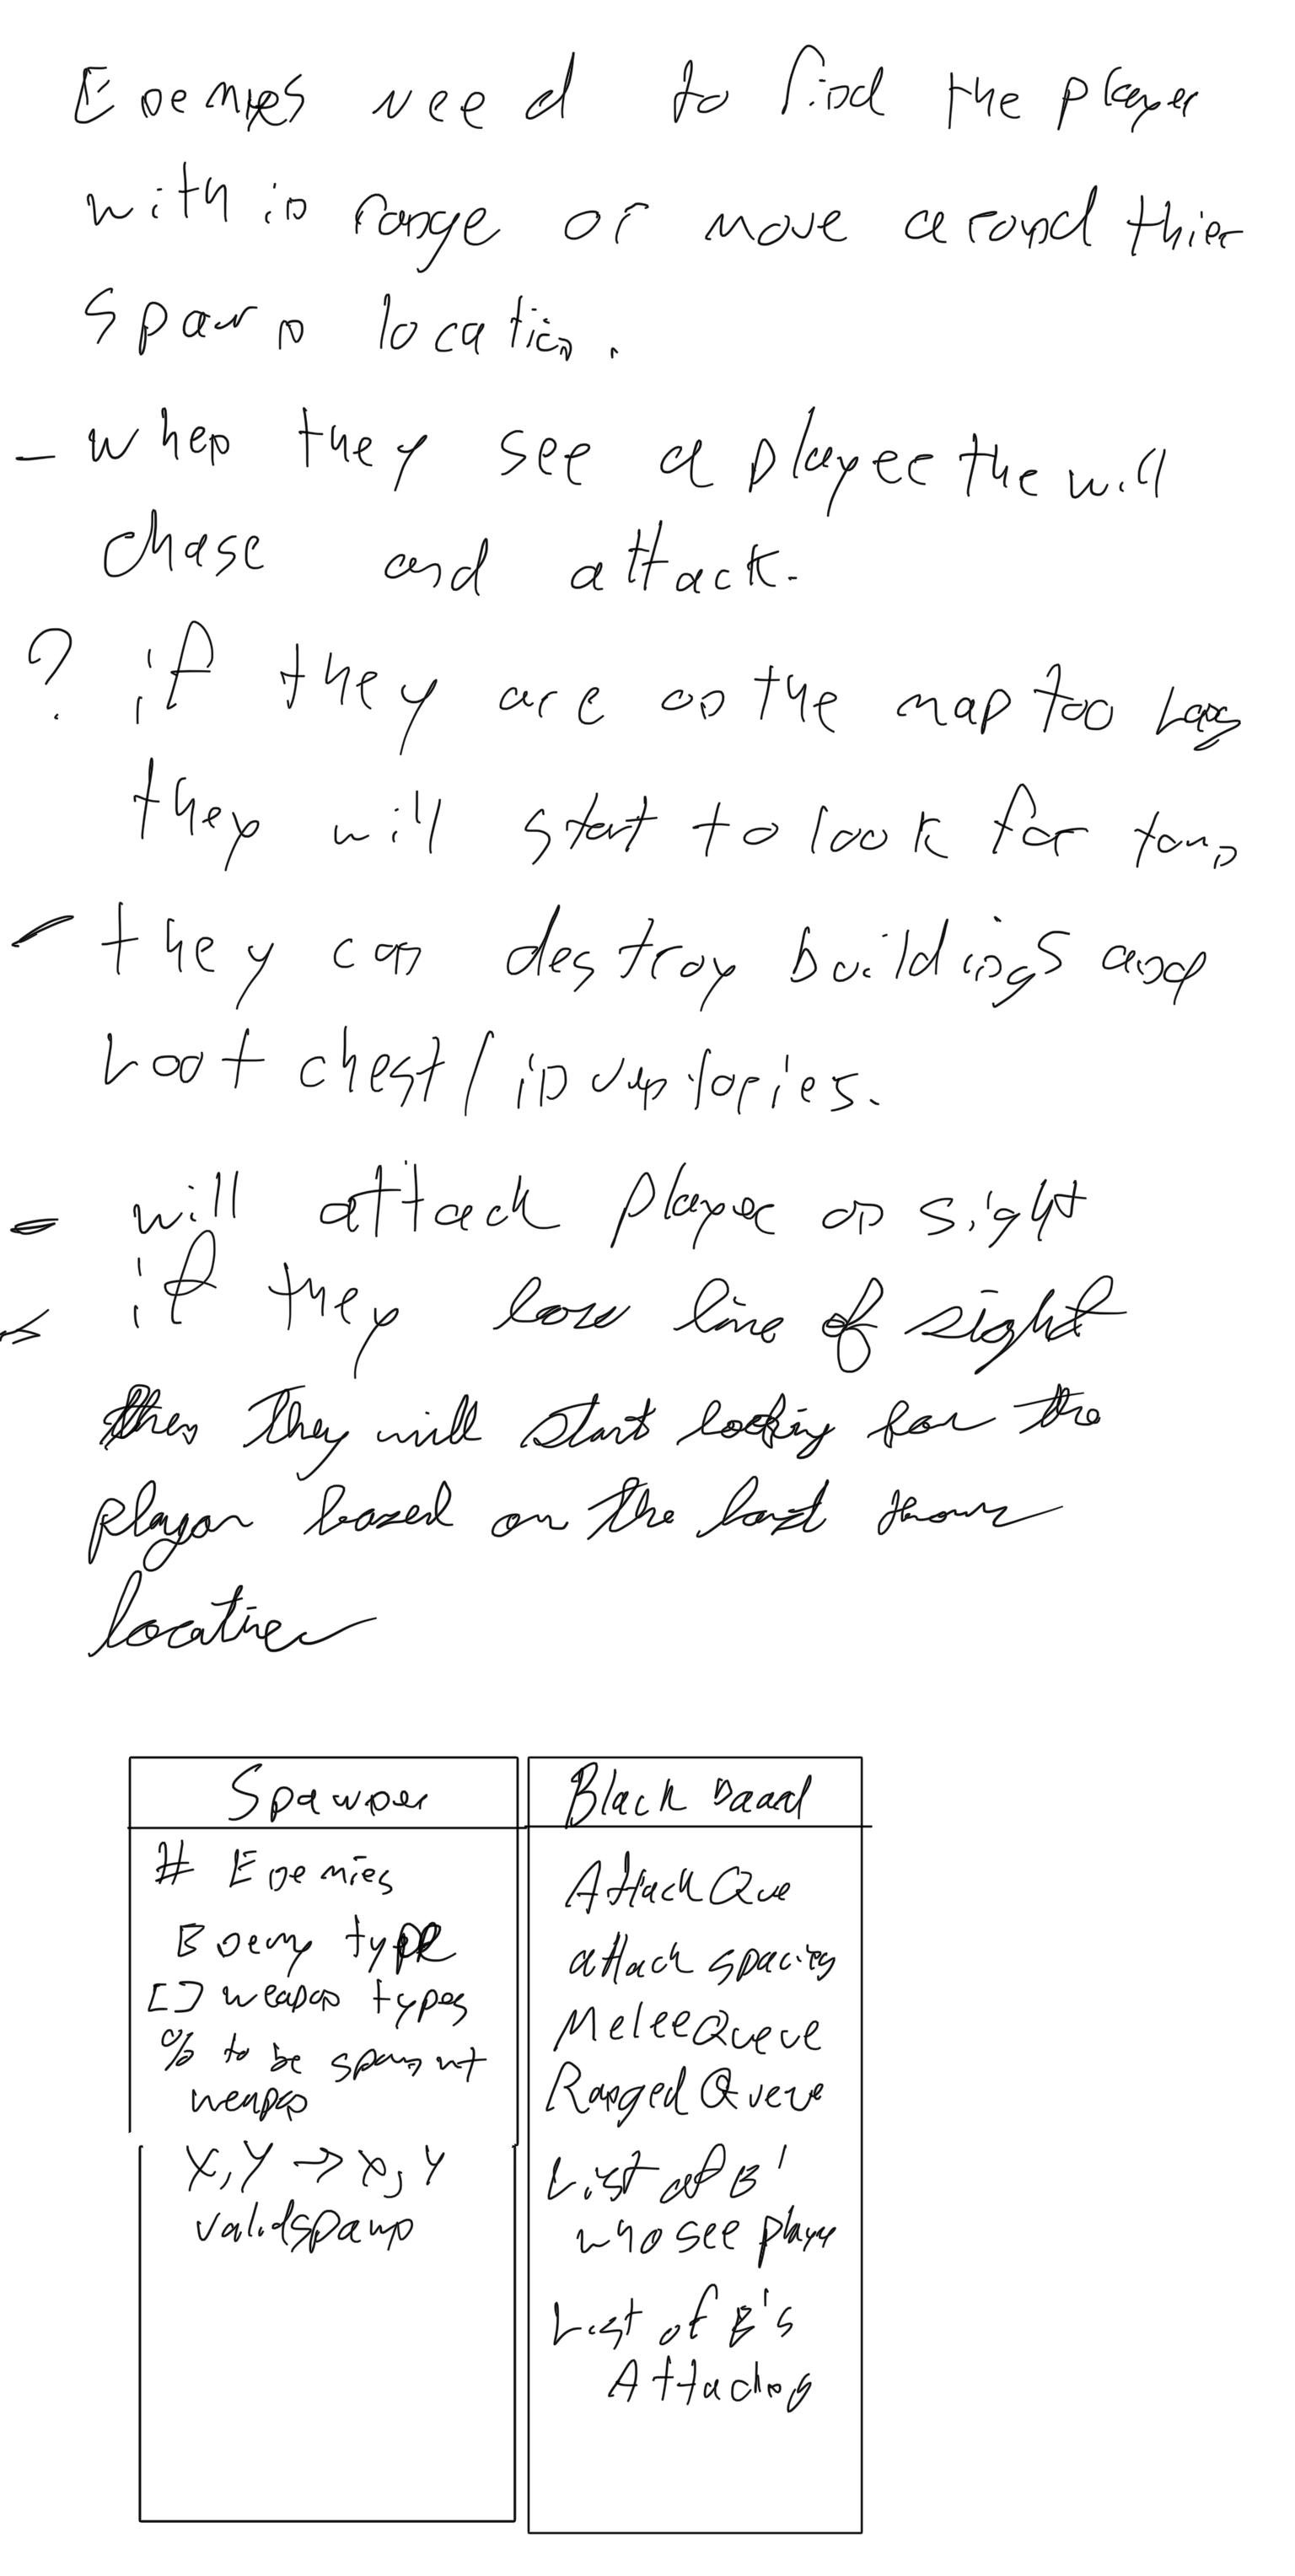 Enemies need to find the player
within range or move around thier
spawn location.
- when they see a player the will
chase and attack.
? if they are on the map too long
they will start to look for town
- they can destroy buildings and
Loot chest/inventories.
- will attack player on sight
- if they lose line of sight
then they will start looking for the
player based on the last known
location
Spawner
# Enemies
Enemy type
[] weapon types
% to be spawn wt
weapon
X,Y → X,Y
valid spawn
Black Board
Attack Que
attack spacing
MeleeQueue
Ranged Queue
List of E'
who see player
List of E's
Attacking